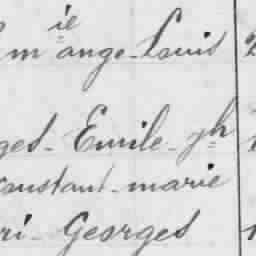 m ie ange Louis
ges Emile jh
constant marie
ri Georges